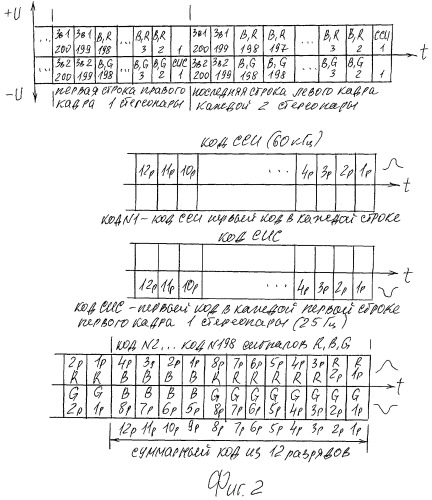 +U
... Зв1 Зв1 B,R ... B,R B,R Зв1 Зв1 B,R B,R ... B,R B,R ССИ
... 200 199 198 ... 3 2 1 200 199 198 197 ... 3 2 1
t
... Зв2 Зв2 B,G ... B,G B,G СИС Зв2 Зв2 B,G B,G ... B,G B,G
... 200 199 198 ... 3 2 1 200 199 198 198 ... 3 2 1
-U
первая строка правого последняя строка левого кадра
кадра 1 стереопары каждой 2 стереопары
код ССИ (60 кГц)
12р 11р 10р ... 4р 3р 2р 1р
t
код N1 - код ССИ первый код в каждой строке
код СИС
t
12р 11р 10р ... 4р 3р 2р 1р
код СИС - первый код в каждой первой строке
первого кадра 1 стереопары (25 Гц)
код N2 ... код N198 сигналов R, B, G
2р 1р 4р 3р 2р 1р 8р 7р 6р 5р 4р 3р R R
R R B B B B R R R R R R 2р 1р
t
G G B B B B G G G G G G G G
2р 1р 8р 7р 6р 5р 8р 7р 6р 5р 4р 3р 2р 1р
12р 11р 10р 9р 8р 7р 6р 5р 4р 3р 2р 1р
суммарный код из 12 разрядов
Фиг. 2